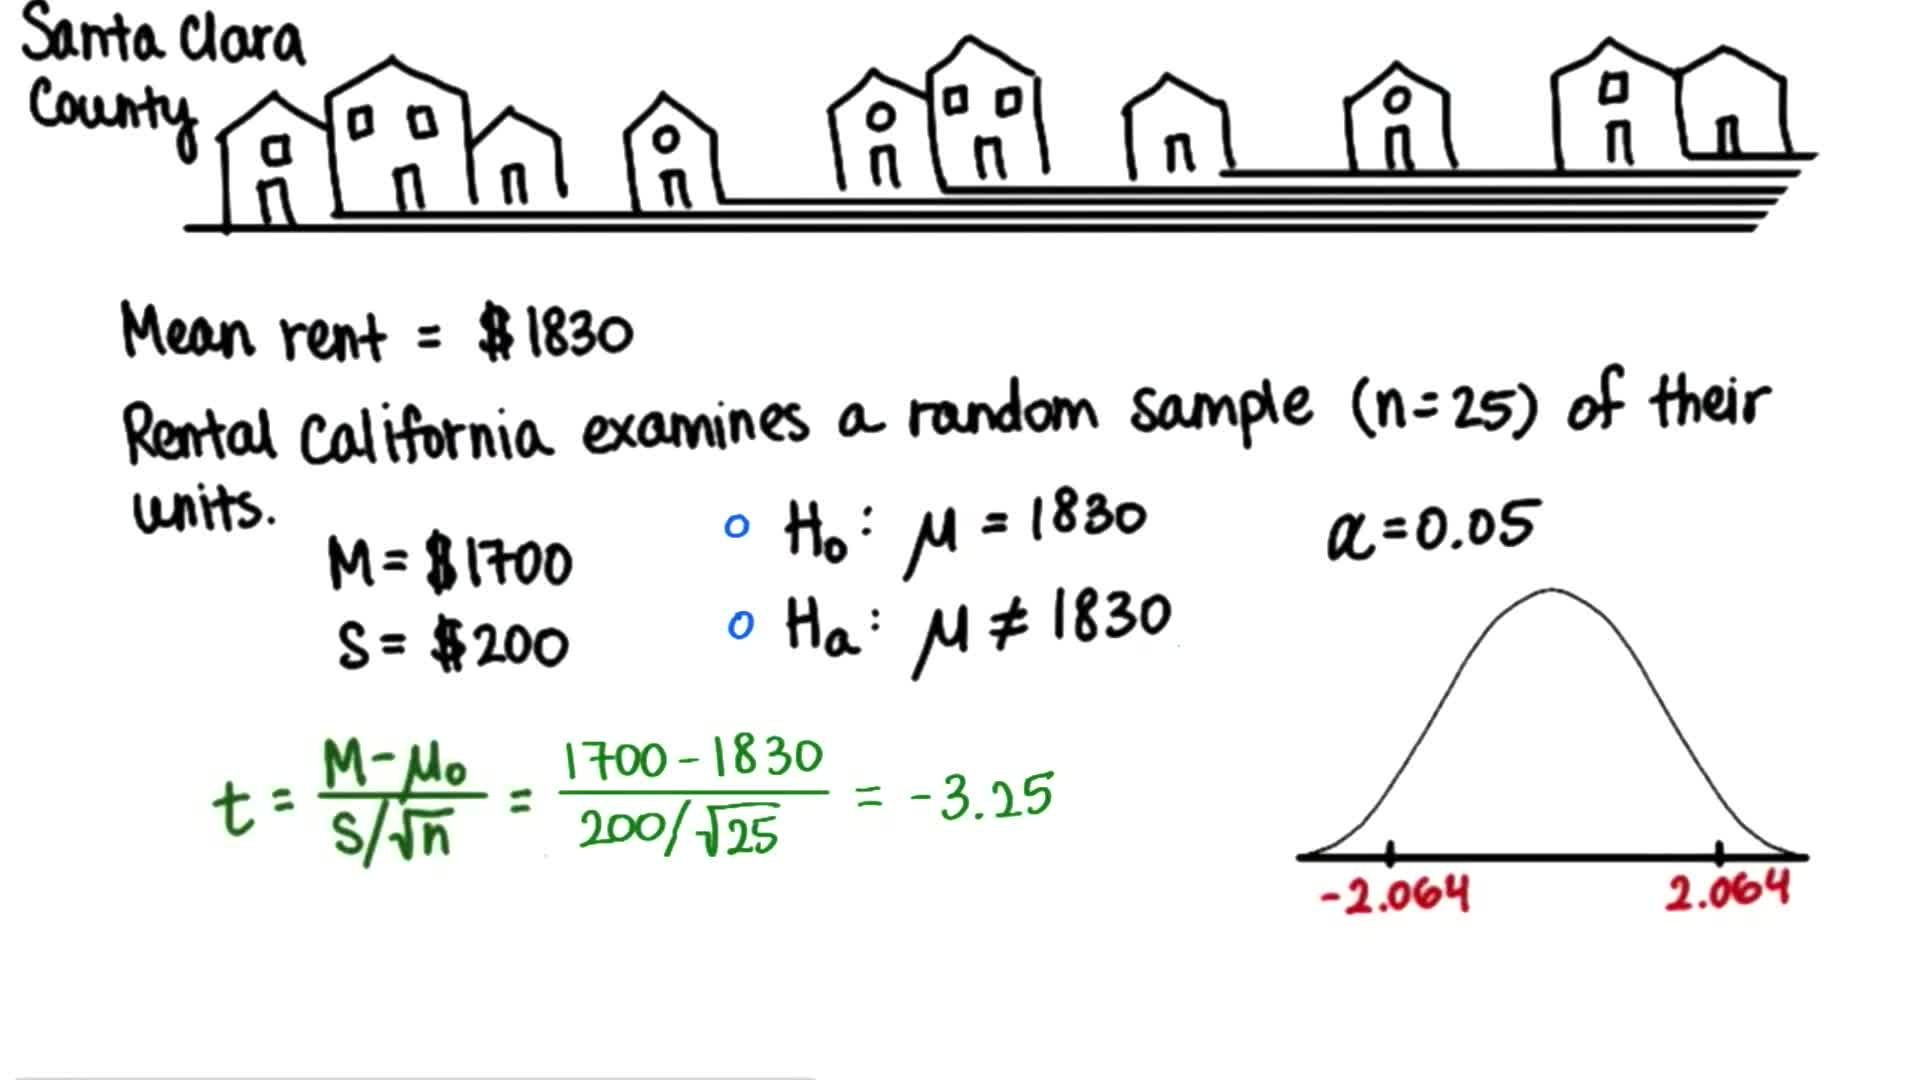 Santa Clara
County
Mean rent = $1830
Rental California examines a random sample (n=25) of their
units.
M = $1700
S = $200
H₀: μ = 1830
Hₐ: μ ≠ 1830
α = 0.05
t = M - μ₀ / S/√n = 1700 - 1830 / 200/√25 = -3.25
-2.064 2.064